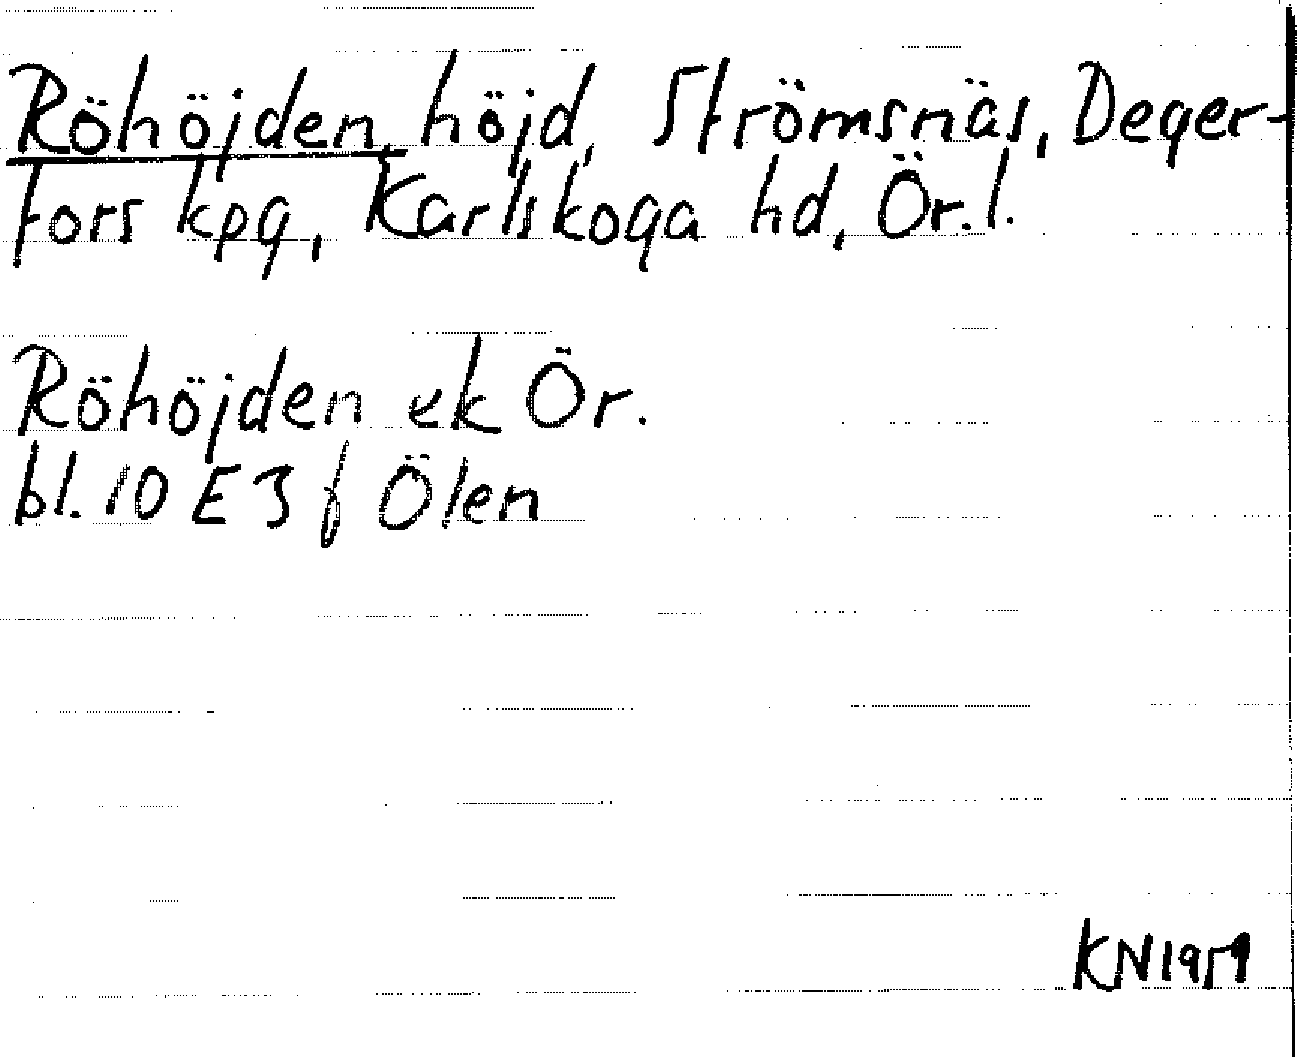 Röhöjden, höjd, Strömsnäs, Deger-
fors kpg, Karlskoga hd, Ör. l.
Röhöjden ek Ör.
bl. 10 E 3 f Ölen
KN 1959